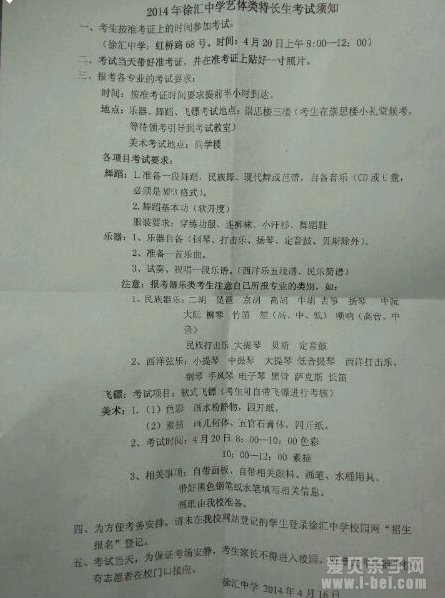 2014年徐汇中学艺体类特长生考试须知
一、考生按准考证上的时间参加考试。
（徐汇中学：虹桥路68号，时间：4月20日上午8:00—12:00）
二、考试当天带好准考证，并在准考证上贴好一寸照片。
三、报考各专业的考试要求：
时间：按准考证时间要求提前半小时到达。
地点：乐器、舞蹈、飞镖考试地点：崇思楼三楼（考生在崇思楼小礼堂候考，
等待领考引导到考试教室）
美术考试地点：尚学楼
各项目考试要求：
舞蹈：1.准备一段舞蹈，民族舞、现代舞或芭蕾，自备音乐（CD或U盘，
必须是MP3格式）。
2.舞蹈基本功（软开度）
服装要求：穿练功服、连裤袜、小汗衫、舞蹈鞋
乐器：1、乐器自备（钢琴、打击乐、扬琴、定音鼓、贝斯除外）。
2、准备一首乐曲。
3、试奏、视唱一段乐谱。（西洋乐五线谱、民乐简谱）
注意：报考器乐类考生注意自己所报专业的类别，如：
1、民族器乐：二胡 琵琶 京胡 高胡 中胡 古筝 扬琴 中阮
大阮 柳琴 竹笛 笙（高、中、低） 唢呐（高音、中
音）
民族打击乐 大提琴 贝斯 定音鼓
2、西洋弦乐：小提琴 中提琴 大提琴 低音提琴 西洋打击乐、
钢琴 手风琴 电子琴 黑管 萨克斯 长笛
飞镖：考试项目：软式飞镖（考生可自带飞镖进行考核）
美术：1、（1）色彩 画水粉静物，四开纸。
（2）素描 画几何体、五官石膏体，四开纸。
2、考试时间：4月20日8：00—10：00色彩
10：00—12：00 素描
3、相关事项：自带画板、自带相关颜料、画笔、水桶用具。
带好黑色钢笔或水笔填写相关信息。
画纸由我校准备。
四、为方便考务安排，请未在我校网站登记的学生登录徐汇中学校园网“招生
报名”登记。
五、考试当天，为保证考场安静，考生家长不得进入校园。
有志愿者在校门口接应。
徐汇中学 2014年4月16日
爱贝亲子网
www.i-bei.com